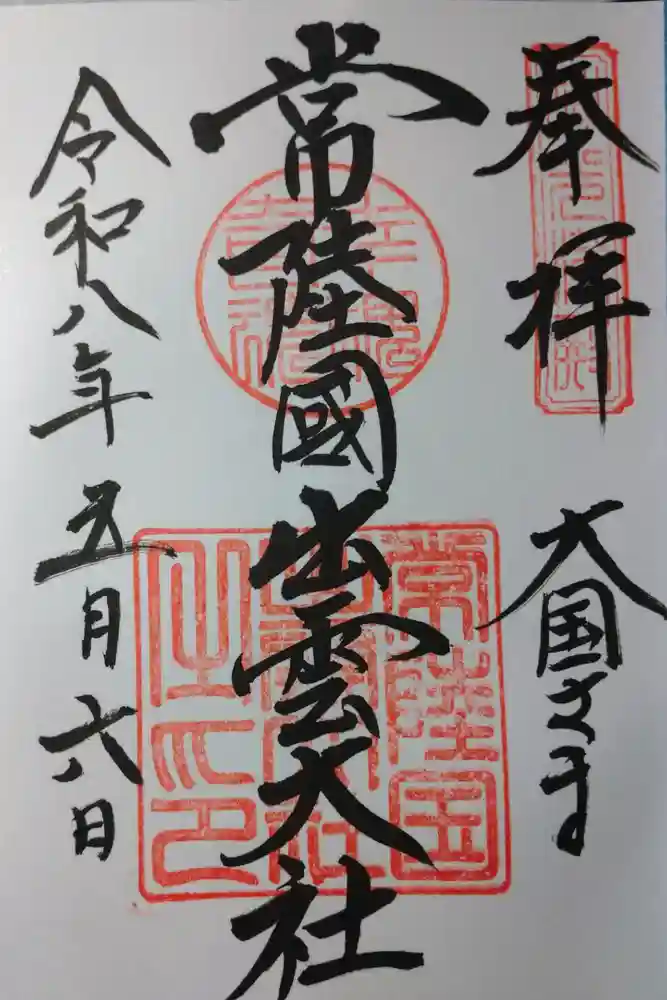 奉拝
大国さま
常陸國出雲大社
常陸国出雲大社之印
令和八年五月六日